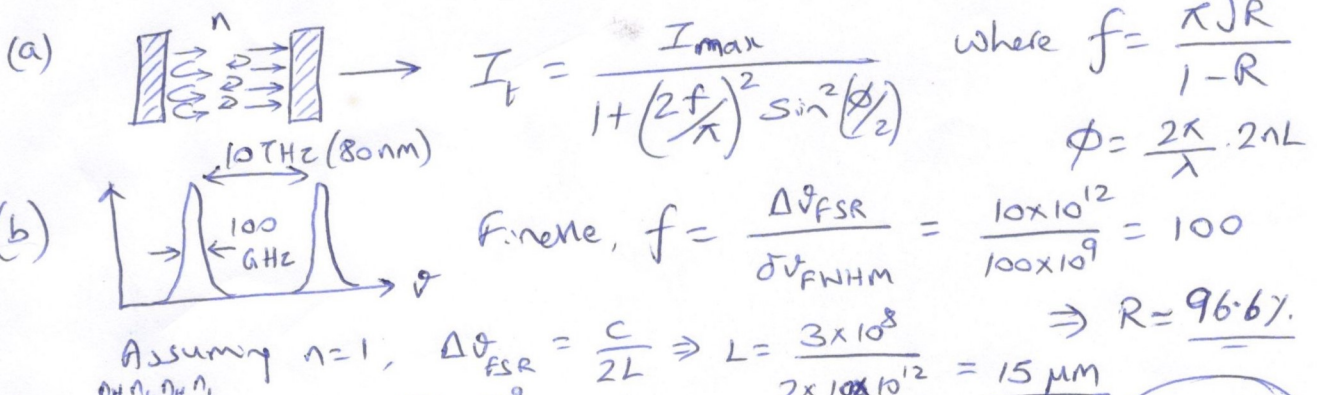 (a) n I_t = I_max / (1 + (2f/π)² sin²(φ/2)) where f = π√R / (1-R)
φ = 2π/λ . 2nL
10 THz (80nm)
(b) 100 GHz ϑ Finesse, f = Δϑ_FSR / δϑ_FWHM = 10×10¹² / 100×10⁹ = 100
⇒ R = 96.6%.
Assuming n=1, Δϑ_FSR = c / 2L ⇒ L = 3×10⁸ / 2×10×10¹² = 15 μm